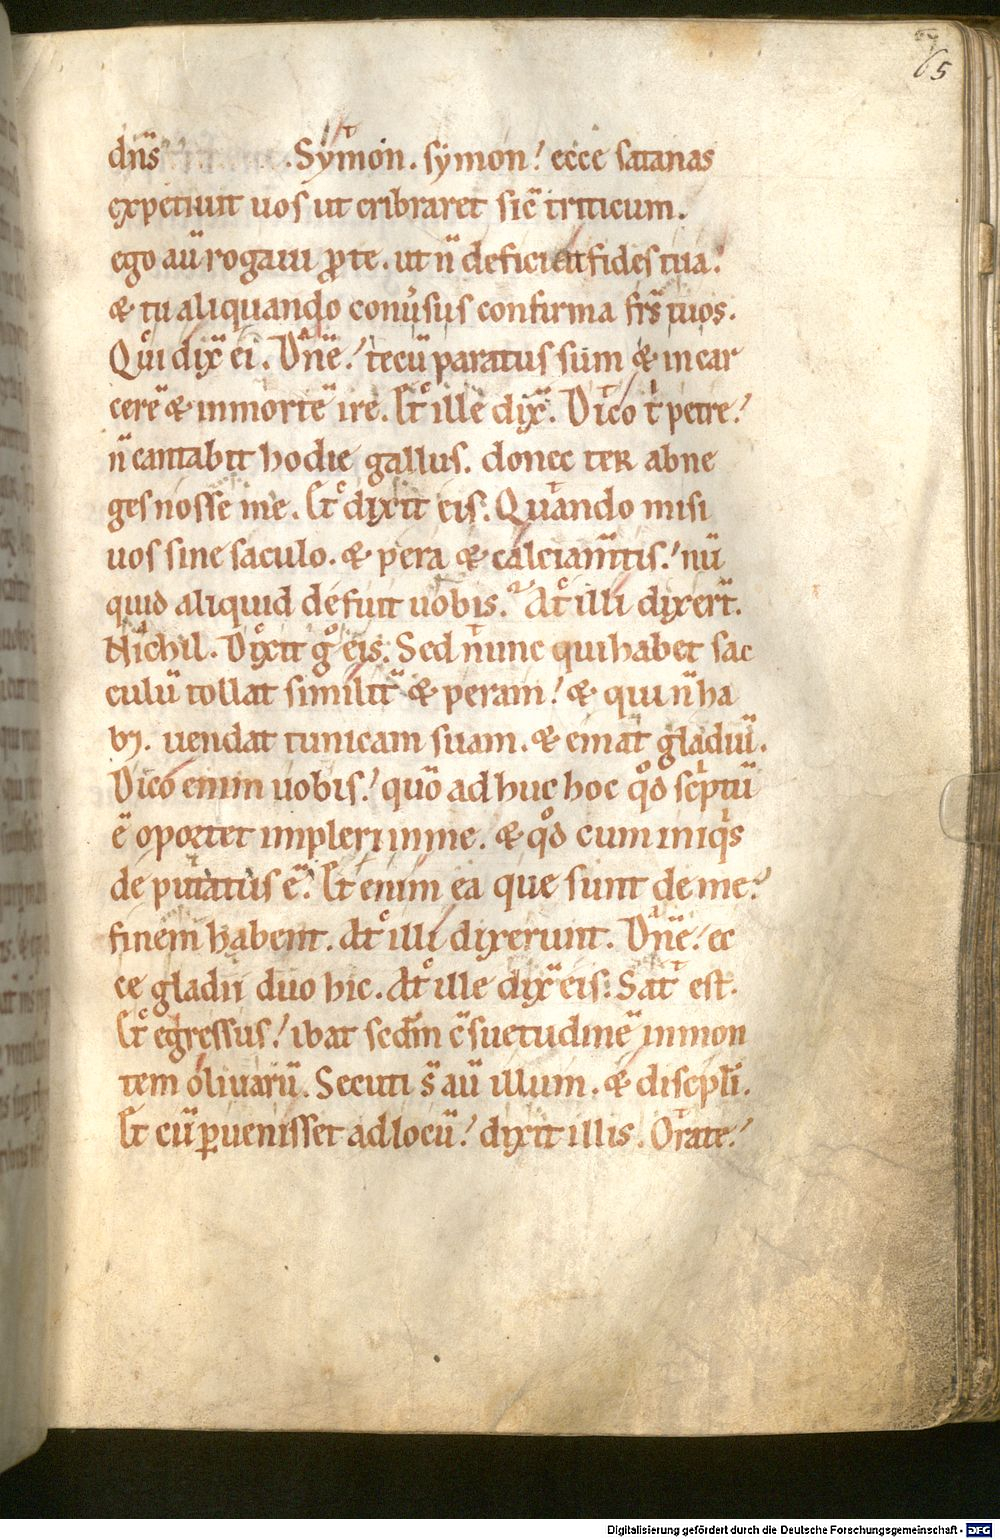 65
dn̄s . Symon . symon! ecce satanas
expetiuit uos ut cribraret sic̄ triticum.
ego aū rogaui ꝓte. ut n̄ deficiat fides tua!
& tu aliquando conūsus confirma fr̄s tuos.
Qui dix̄ ei. Dn̄e! tecū paratus sum & in car
cerē & in mortē ire. Et ille dix̄. Dico t̄ petre!
n̄ cantabit hodie gallus. donec ter abne
ges nosse me. Et dixit eis. Quando misi
uos sine saculo. & pera & calciam̄tis! nū
quid aliquid defuit uobis. At illi dixer̄t.
Nichil. Dixit gͦ eis. Sed nunc qui habet sac
culū tollat similit̄ & peram! & qui n̄ ha
bꝫ. uendat tunicam suam. & emat gladiū.
Dico enim uobis! quō ad huc hoc qͦd scͥptū
ē oportet impleri in me. & qͦd cum iniqͥs
de putatus ē. Et enim ea que sunt de me!
finem habent. At illi dixerunt. Dn̄e! ec
ce gladii duo hic. At ille dix̄ eis. Sat est.
Et egressus! ibat scdm̄ c̄suetudinē in mon
tem oliuarū. Secuti s̄ aū illum. & discipl̄i.
Et cū ꝑuenisset ad locū! dixit illis. Orate!
Digitalisierung gefördert durch die Deutsche Forschungsgemeinschaft - DFG